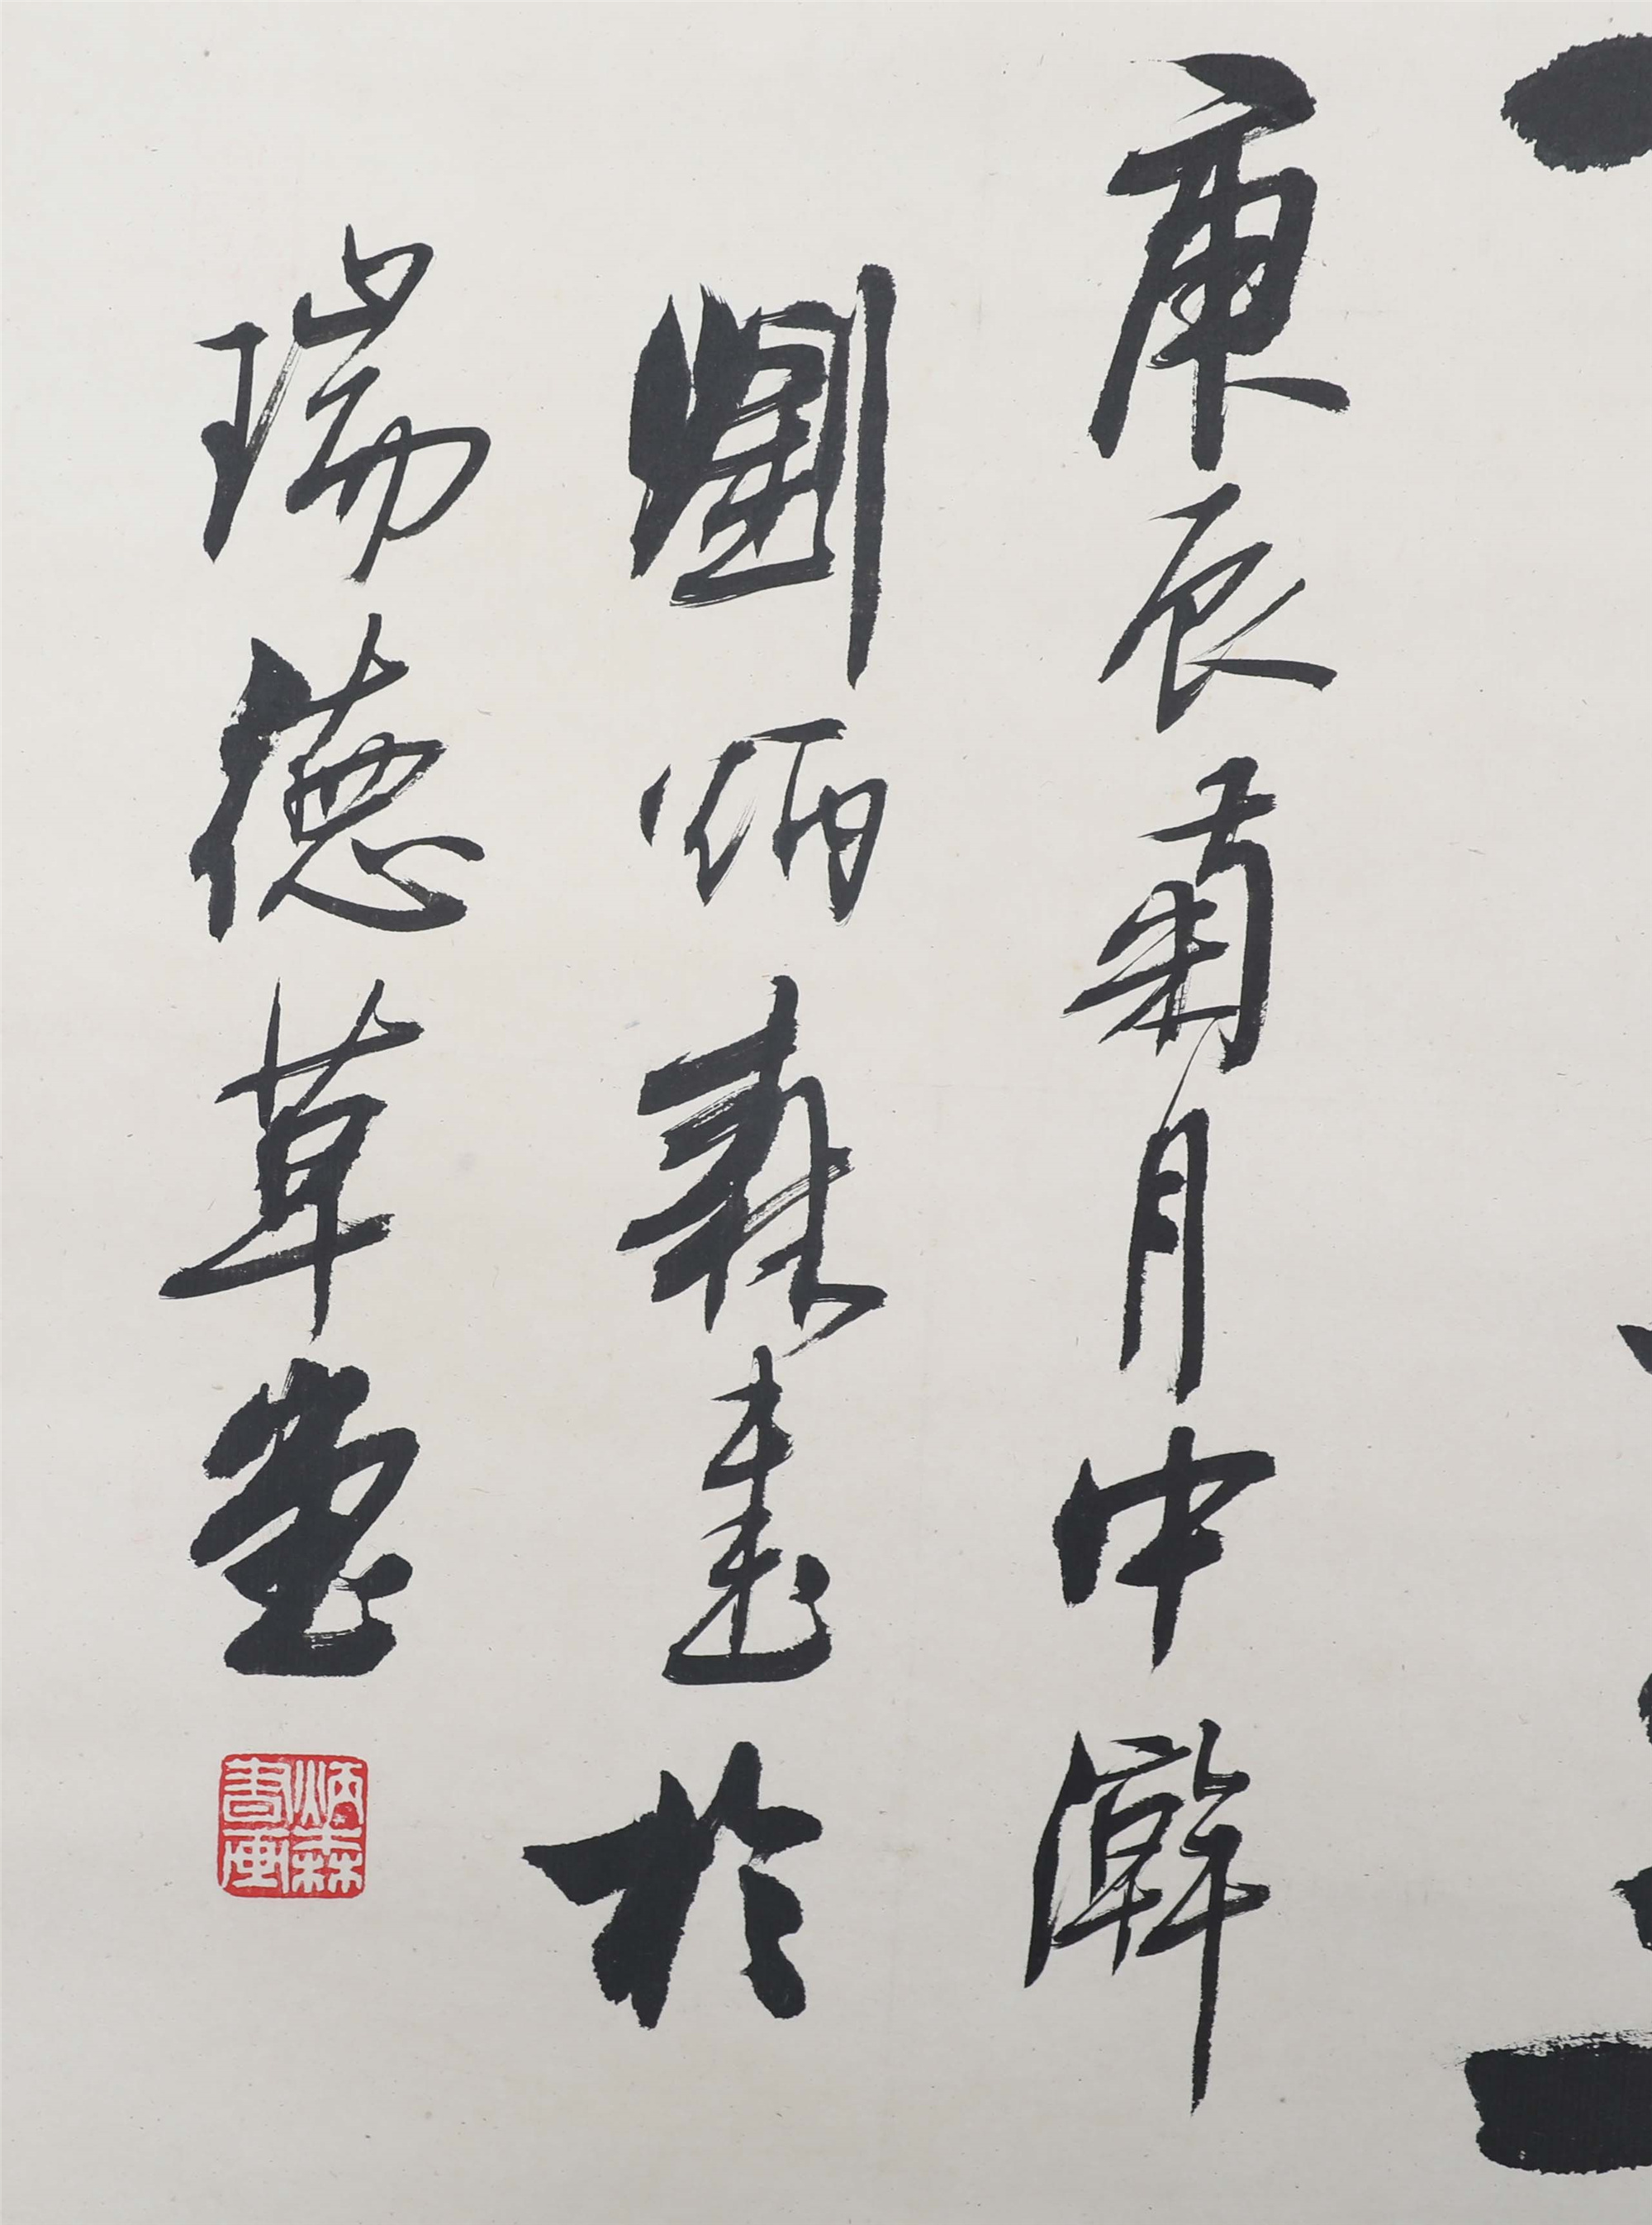 庚辰菊月中澣
劉炳森書於
瑞德草堂
炳森
書画